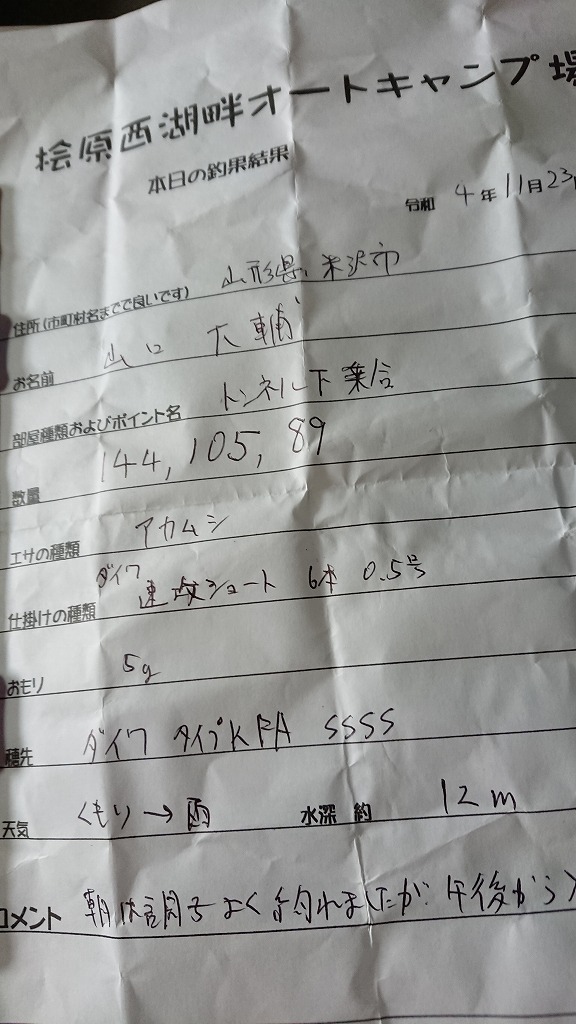 桧原西湖畔オートキャンプ場
本日の釣果結果
令和 4年11月23日
住所(市町村名までで良いです) 山形県、米沢市
お名前 山口 大輔
部屋種類およびポイント名 トンネル下 乗合
数量 144, 105, 89
エサの種類 アカムシ
仕掛けの種類 ダイワ 速攻ショート 6本 0.5号
おもり 5g
穂先 ダイワ タイプK FA SSSS
天気 くもり→雨 水深 約 12m
コメント 朝は調子よく釣れましたが、午後から